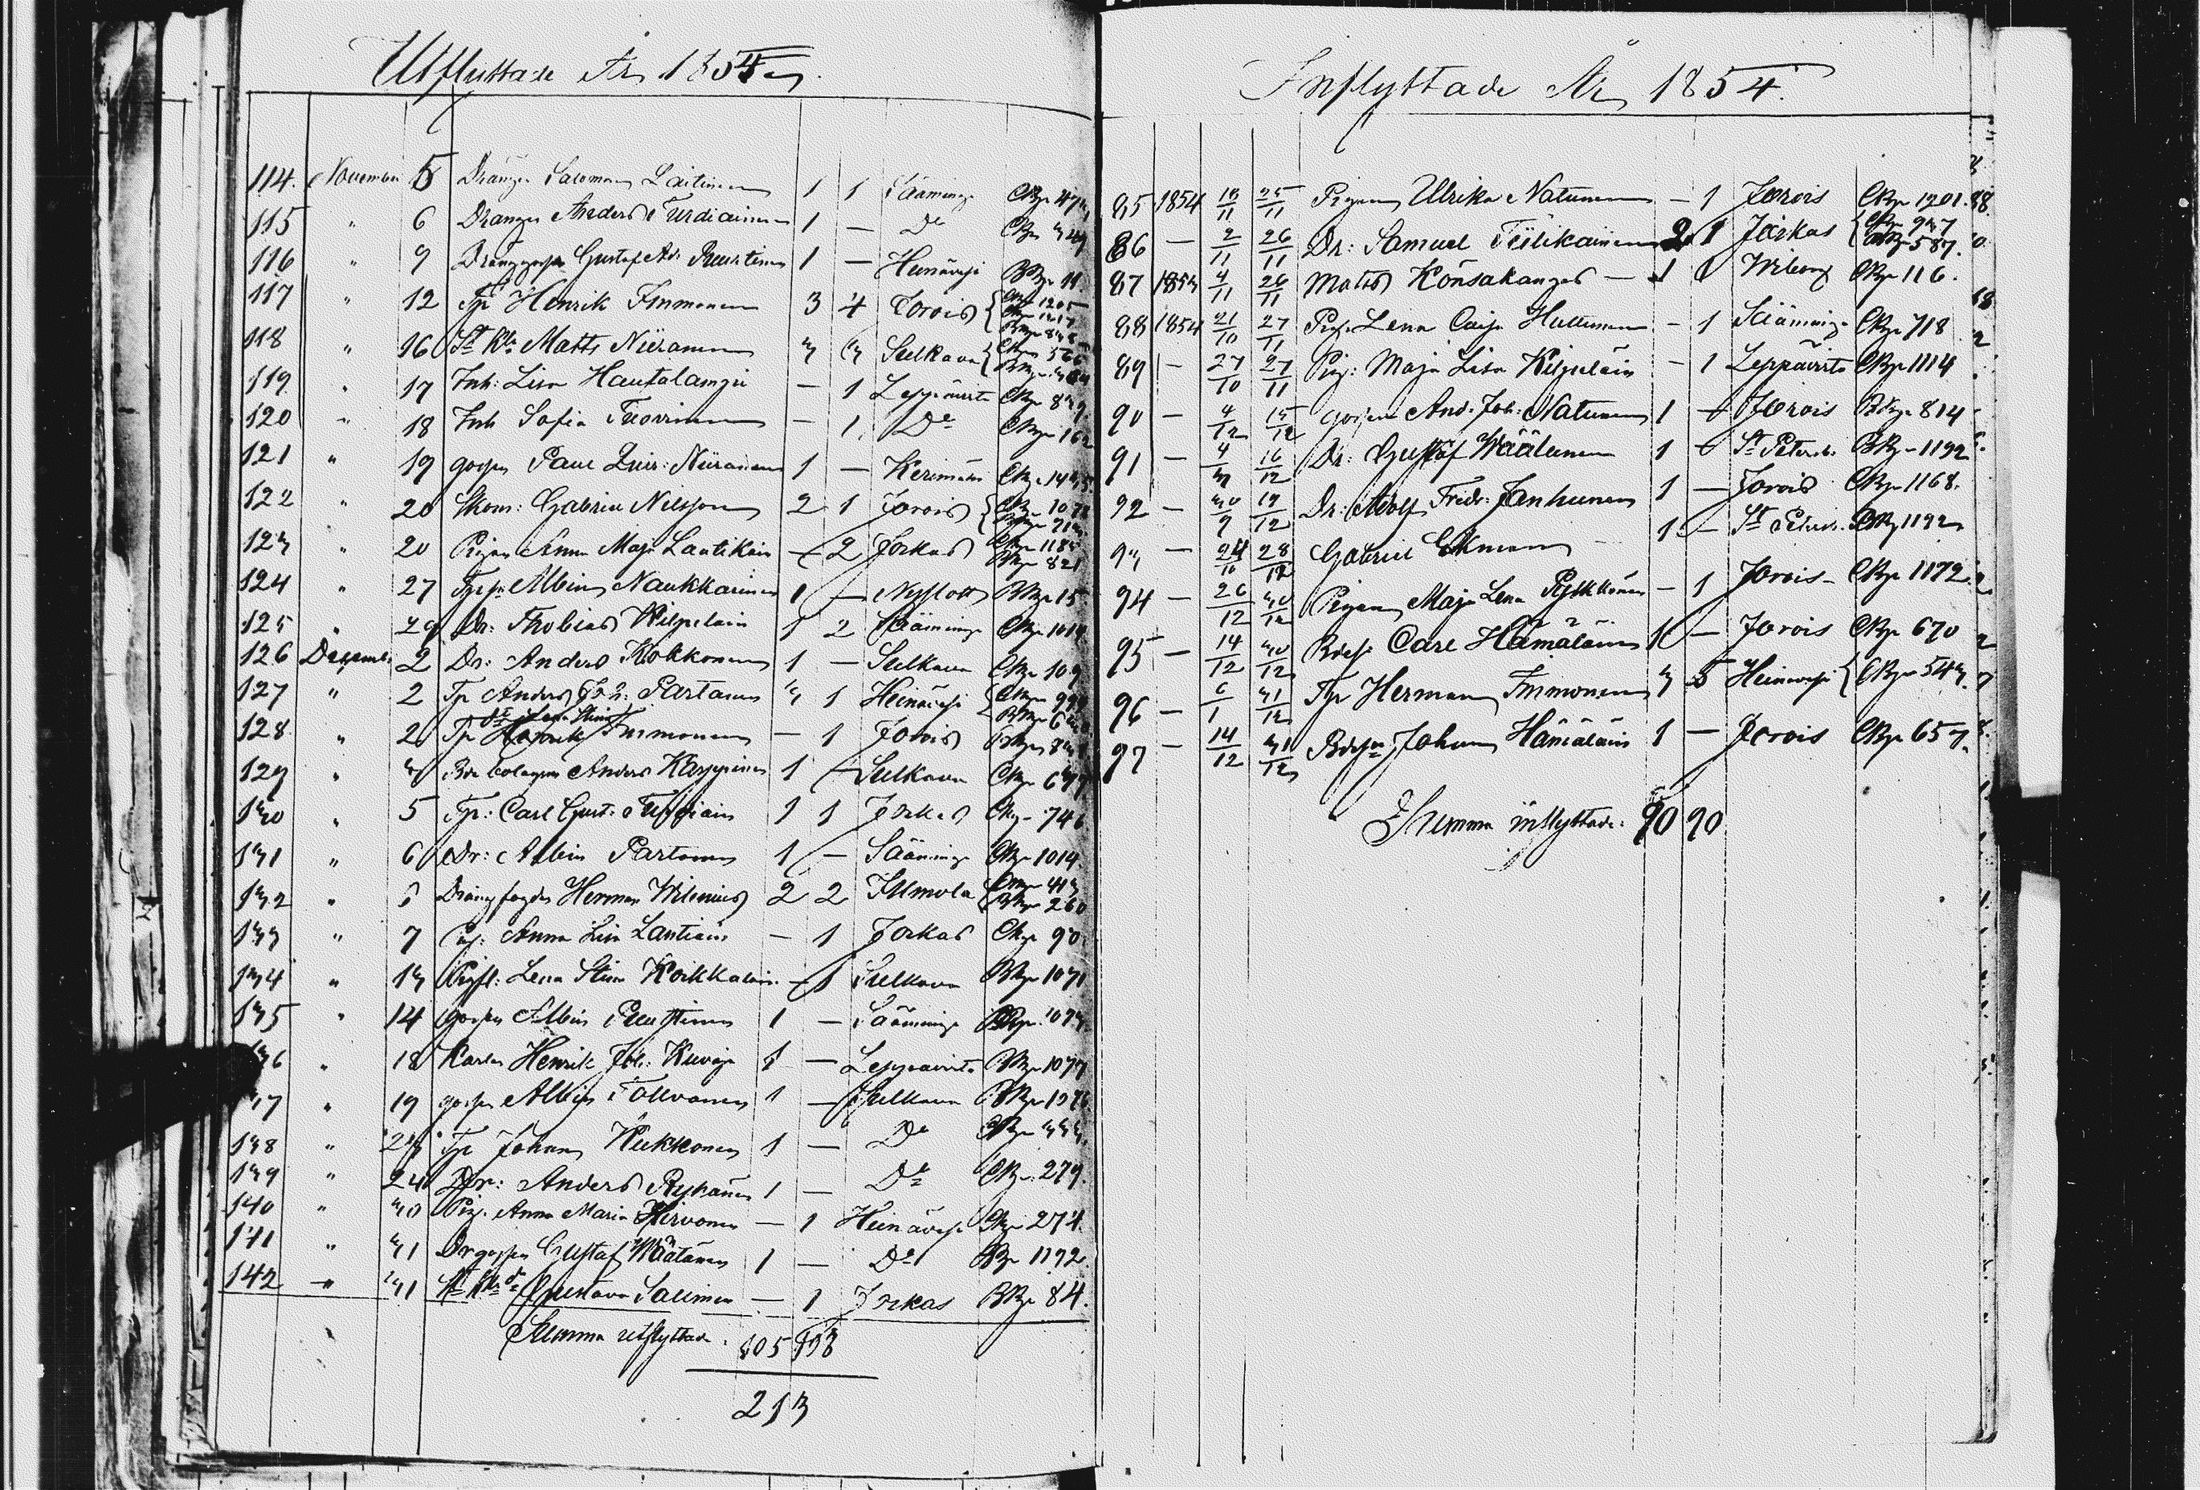 Utflyttade År 1854
114. November 5 Drängen Salomon Laitinen 1 1 Sääminge CBp 474
115 " 6 Drängen Anders Turdiainen 1 — Do CBp
116 " 9 Dränggossen Gustaf Ad: Puustinen 1 — Heinävesi BBp 11
117 " 12 Tp Henrik Immonen 3 4 Jorois { CBp 1205 CBp 1217 BBp
118 " 16 Matts Niiranen 3 3 Sulkava { CBp BBp
119 " 17 Inh: Lisa Hautalampi — 1 Leppävirta CBp 839
120 " 18 Inh Sofia Tuovinen — 1 Do CBp 162
121 " 19 gossen Paul Niiranen 1 — Kerimäki CBp 1435
122 " 20 Skom: Gabriel Nilsson 2 1 Jorois { CBp 1078 BBp
123 " 20 Pigan Anna Maja Lautikain — 2 Jorkas CBp 1185 BBp 821
124 " 27 Albin Naukkarinen 1 — Nyslott BBp 15
125 " 29 Dr: Thobias Kilpelain 1 2 Sääminge CBp 1014
126 December 2 Dr: Anders Kokkonen 1 — Sulkava CBp 109
127 " 2 Tp Anders Joh: Partanen 3 1 Heinävesi { CBp BBp
128 " 2 Tp Henrik Immonen — 1 Jorois BBp
129 " 3 Anders Karppinen 1 — Sulkava CBp
130 " 5 Tp: Carl Gust: Turdiain 1 1 Jorkas CBp 746
131 " 6 Dr: Albin Partanen 1 — Sääminge CBp 1014
132 " 6 Drängfogden Herman Wilenius 2 2 Ilmola { CBp 413 BBp 260
133 " 7 Pig: Anna Lisa Lautiain — 1 Jorkas CBp 90
134 " 13 Lena Stina Koikkalain — 1 Sulkava BBp 1031
135 " 14 gossen Albin Puustinen 1 — Sääminge BBp 1073
136 " 18 Karlen Henrik Joh: 1 — Leppävirta BBp 1077
137 " 19 gossen Albin Tolvanen 1 — Sulkava BBp
138 " 23 Tp Johan Kukkonen 1 — Do CBp 333
139 " 24 Dr: Anders 1 — Do CBp 279.
140 " 30 Pig. Anna Maria Hirvonen — 1 Heinävesi CBp 274.
141 " 31 Drgossen Gustaf Väätänen 1 — Do BBp 1192
142 " 31 Gustava Salimen — 1 Jorkas BBp 84.
Summa utflyttade. 105 108
213
Inflyttade År 1854.
85 1854 18/11 25/11 Pigan Ulrika Natunen — 1 Jorois CBp 1201.
86 — 2/11 26/11 Dr: Samuel Tiilikainen 2 1 Jorkas { CBp 947 BBp 587.
87 1853 4/11 26/11 Matts Könsakangas — 1 Wiborg CBp 116.
88 1854 21/10 27/11 Pig. Lena Caisa Huttunen — 1 Sääminge CBp 718
89 — 27/10 27/11 Pig: Maja Lisa Kilpeläin — 1 Leppävirta CBp 1114
90 — 4/12 15/12 gossen And: Joh: Natunen 1 — Jorois BBp 814
91 — 4/3 16/12 Dr: Gustaf Väätänen 1 — St Petersb. BBp 1192
92 — 30/9 19/12 Dr: Adolf Fredr: Janhunen 1 — Jorois CBp 1168.
93 — 24/10 28/12 Gabriel Ekman 1 — St Petersb. BBp 1192
94 — 26/12 30/12 Pigan Maja Lena Pylkkönen — 1 Jorois CBp 1172
95 — 14/12 30/12 Carl Hämäläin 1 — Jorois CBp 670
96 — 6/1 31/12 Tp Herman Immonen 3 5 Heinävesi { CBp 543.
97 — 14/12 31/12 Johan Hämäläin 1 — Jorois CBp 657.
Summa inflyttade. 90 90